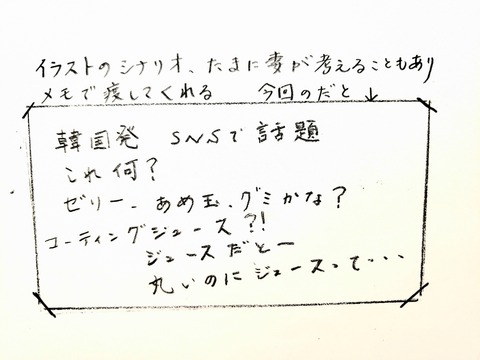 イラストのシナリオ、たまに妻が考えることもあり
メモで渡してくれる　今回のだと↓
韓国発　SNSで話題
これ何?
ゼリー、あめ玉、グミかな?
コーティングジュース?!
ジュースだとー
丸いのにジュースって・・・